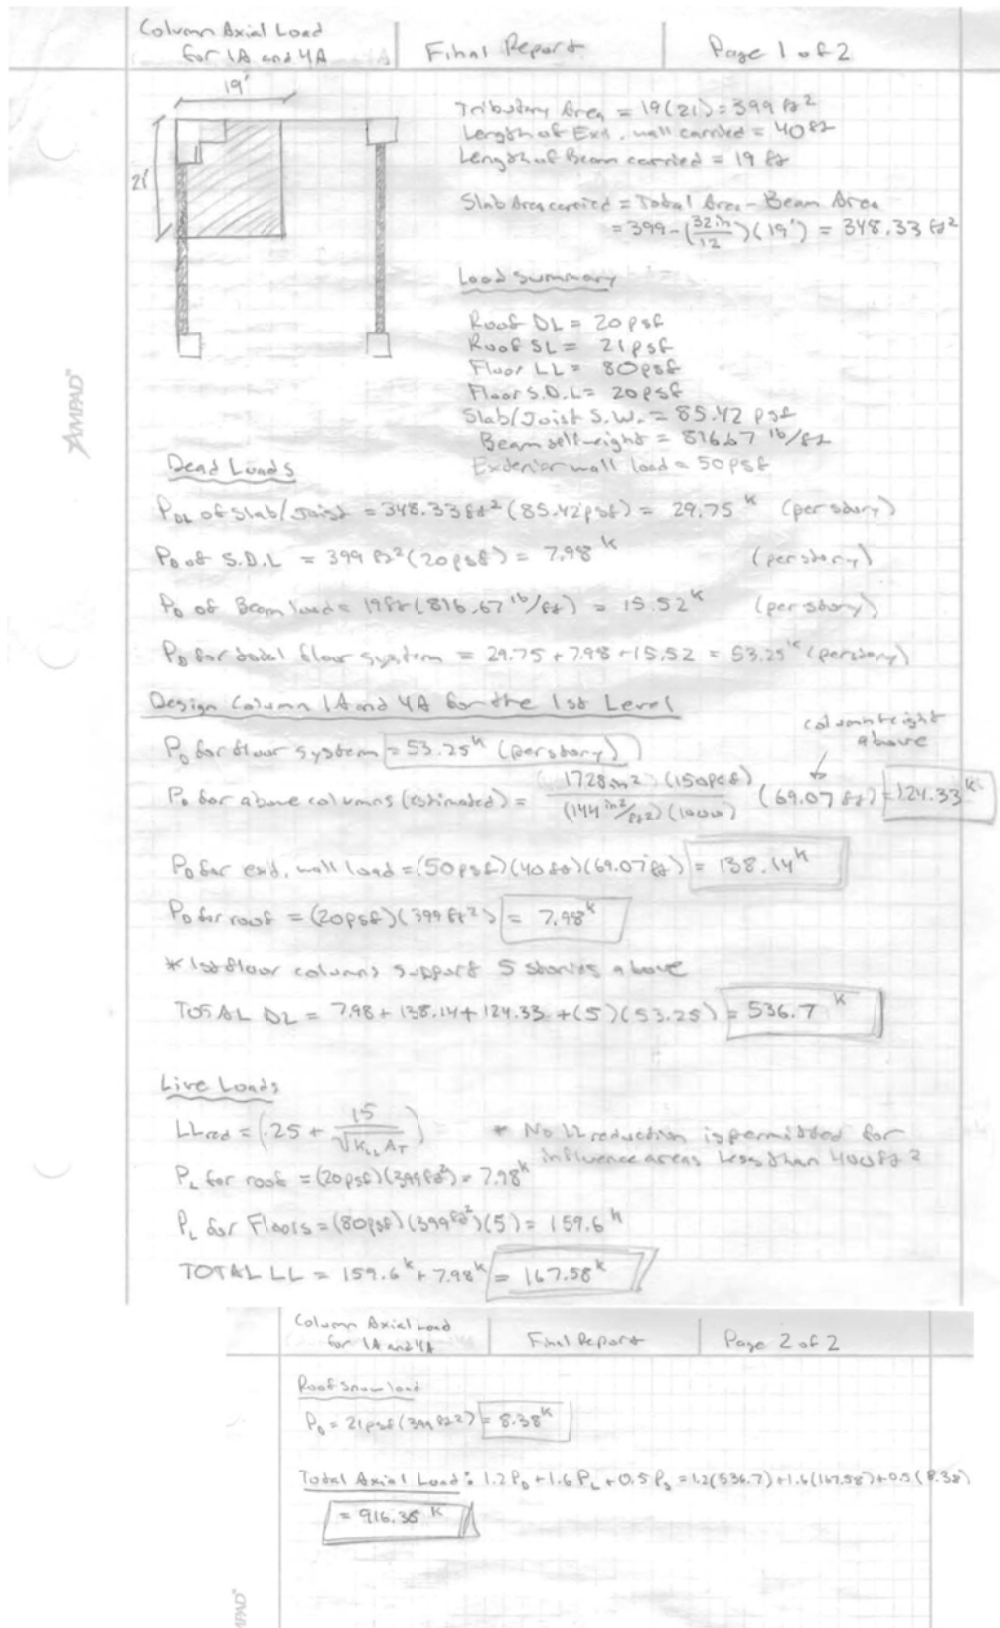 Column Axial Load
for 1A and 4A
Final Report
Page 1 of 2
19'
21'
Tributary Area = 19(21) = 399 ft²
Length of Ext. wall carried = 40 ft
Length of Beam carried = 19 ft
Slab Area carried = Total Area - Beam Area
= 399 - (32in/12)(19') = 348.33 ft²
Load Summary
Roof DL = 20 psf
Roof SL = 21 psf
Floor LL = 80 psf
Floor S.D.L = 20 psf
Slab/Joist S.W. = 85.42 psf
Beam selfweight = 816.67 lb/ft
Exterior wall load = 50 psf
AMPAD
Dead Loads
P_DL of Slab/Joist = 348.33 ft² (85.42 psf) = 29.75 k (per story)
P_D of S.D.L = 399 ft² (20 psf) = 7.98 k (per story)
P_D of Beam load = 19 ft (816.67 lb/ft) = 15.52 k (per story)
P_D for total floor system = 29.75 + 7.98 + 15.52 = 53.25 k (per story)
Design Column 1A and 4A for the 1st Level
column height
above
P_D for floor system = 53.25 k (per story)
P_D for above columns (estimated) = 1728 in² (150 pcf) / (144 in²/ft²)(1000) (69.07 ft) = 124.33 k
P_D for ext. wall load = (50 psf)(40 ft)(69.07 ft) = 138.14 k
P_D for roof = (20 psf)(399 ft²) = 7.98 k
* 1st floor columns support 5 stories above
TOTAL DL = 7.98 + 138.14 + 124.33 + (5)(53.25) = 536.7 k
Live Loads
LLred = (.25 + 15/√(K_LL A_T))
* No LL reduction is permitted for
influence areas less than 400 ft²
P_L for roof = (20 psf)(399 ft²) = 7.98 k
P_L for Floors = (80 psf)(399 ft²)(5) = 159.6 k
TOTAL LL = 159.6 k + 7.98 k = 167.58 k
Column Axial Load
for 1A and 4A
Final Report
Page 2 of 2
Roof Snow load
P_s = 21 psf (399 ft²) = 8.38 k
Total Axial Load: 1.2 P_D + 1.6 P_L + 0.5 P_s = 1.2(536.7) + 1.6(167.58) + 0.5(8.38)
= 916.35 k
MPAD